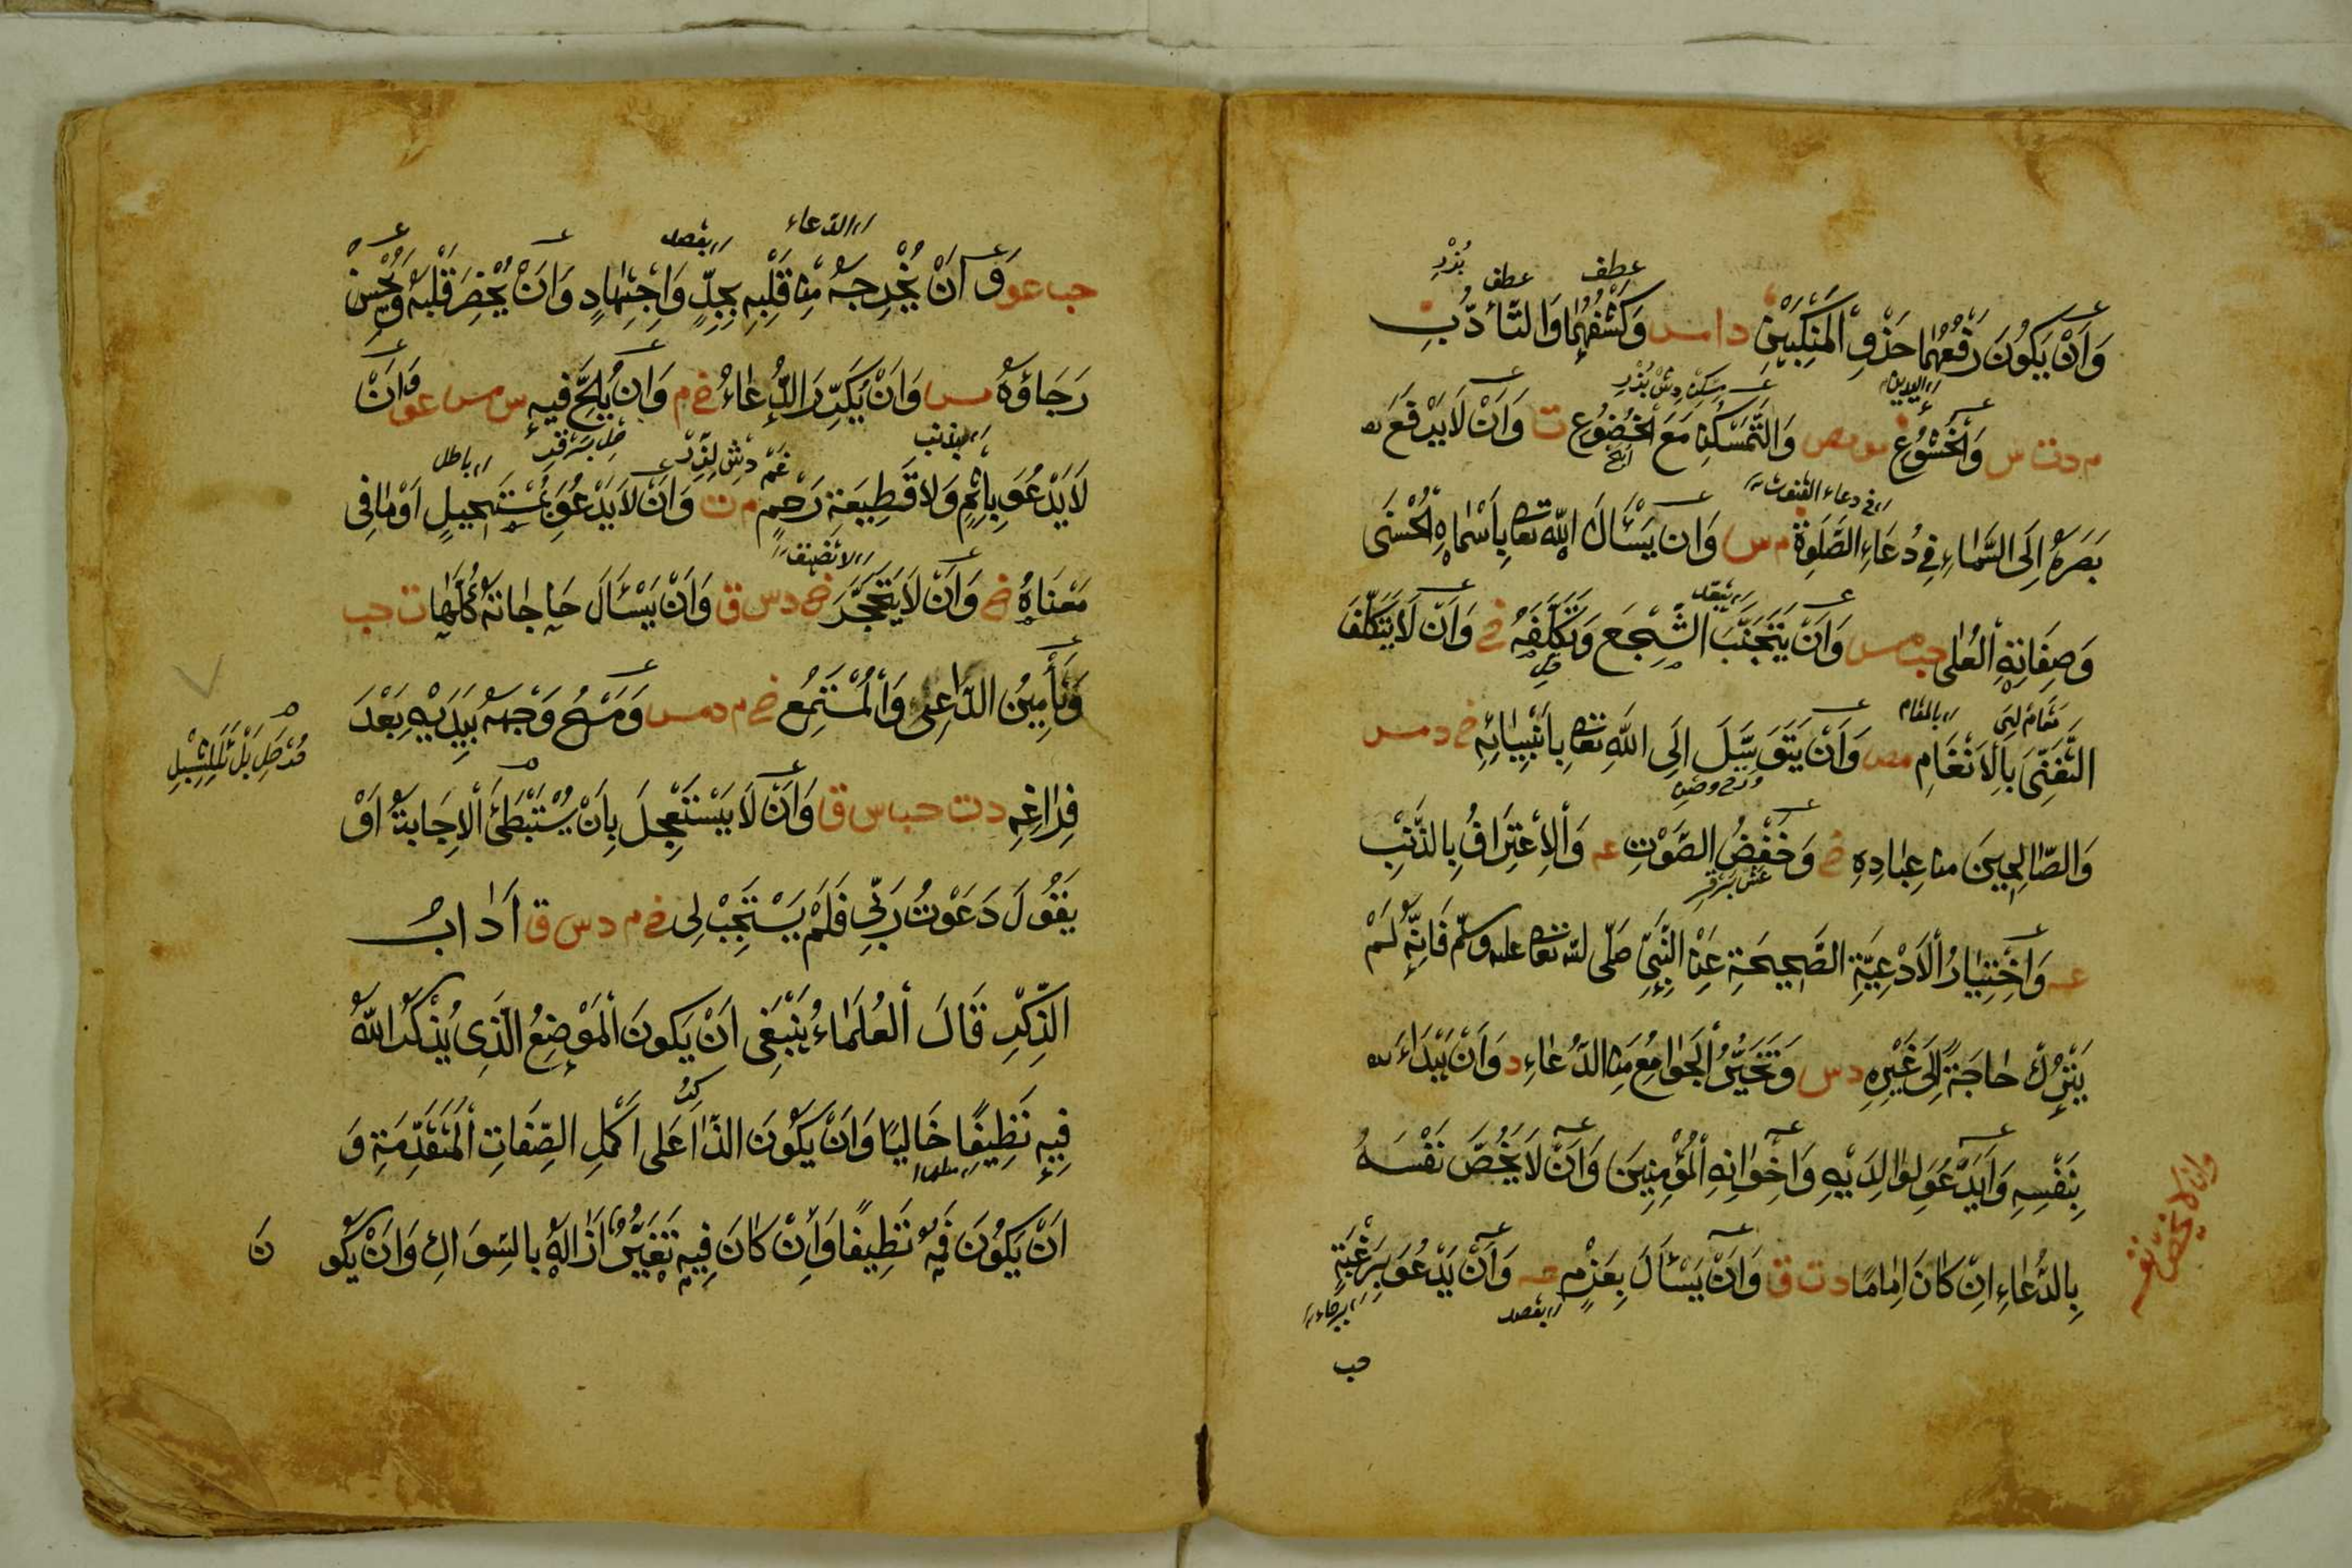 وَاَنْ يَكُونَ رَفْعُهُمَا حَذْوَ الْمَنْكِبَيْنِ د ا مس وَكَشْفُهُمَا وَالتَّأَدُّبُ
م د ت س وَالْخُشُوعُ مو مص وَالتَّمَسْكُنُ مَعَ الْخُضُوعِ ت وَاَنْ لَا يَرْفَعَ
بَصَرَهُ اِلَى السَّمَاءِ فِي دُعَاءِ الصَّلَوةِ م س وَاَنْ يَسْأَلَ اللّٰهَ تعا بِاَسْمَاهِ الْحُسْنَى
وَصِفَاتِهِ الْعُلٰى حب مس وَاَنْ يَتَجَنَّبَ السَّجْعَ وَتَكَلُّفَهُ خ وَاَنْ لَا يَتَكَلَّفَ
التَّغَنِّيَ بِالْاَنْغَامِ مص وَاَنْ يَتَوَسَّلَ اِلَى اللّٰهِ تعا بِاَنْبِيَائِهِ خ د مس
وَالصَّالِحِينَ مِنْ عِبَادِهِ خ وَخَفْضُ الصَّوْتِ عه وَالْاِعْتِرَافُ بِالذَّنْبِ
عه وَاخْتِيَارُ الْاَدْعِيَةِ الصَّحِيحَةِ عَنِ النَّبِيِّ صَلَّى الله تعا عليه وسلّم فَاِنَّهُ لَمْ
يَتْرُكْ حَاجَةً اِلَى غَيْرِهِ د س وَتَخَيُّرُ الْجَوَامِعِ مِنَ الدُّعَاءِ د وَاَنْ يَبْدَاءَ
بِنَفْسِهِ وَاَنْ يَدْعُوَ لِوَالِدَيْهِ وَاِخْوَانِهِ الْمُؤْمِنِينَ وَاَنْ لَا يَخُصَّ نَفْسَهُ
بِالدُّعَاءِ اِنْ كَانَ اِمَامًا د ت ق وَاَنْ يَسْأَلَ بِعَزْمٍ عه وَاَنْ يَدْعُوَ بِرَغْبَةٍ
حب
حب عو وَاَنْ يُخْرِجَهُ مِنْ قَلْبِهِ بِجِدٍّ وَاجْتِهَادٍ وَاَنْ يُحْضِرَ قَلْبَهُ وَيُحْسِنَ
رَجَاؤَهُ مس وَاَنْ يُكَرِّرَ الدُّعَاءَ خ م وَاَنْ يُلِحَّ فِيهِ س مس عو وَاَنْ
لَا يَدْعُوَ بِاِثْمٍ وَلَا قَطِيعَةِ رَحِمٍ م ت وَاَنْ لَا يَدْعُوَ بِمُسْتَحِيلٍ اَوْ مَا فِى
مَعْنَاهُ خ وَاَنْ لَا يَتَحَجَّرَ خ د س ق وَاَنْ يَسْأَلَ حَاجَاتِهُ كُلَّهَا ت حب
وَتَأْمِينُ الدَّاعِى وَالْمُسْتَمِعِ خ م د مس وَمَسْحُ وَجْهِهِ بِيَدَيْهِ بَعْدَ
فِرَاغِهِ د ت حب س ق وَاَنْ لَا يَسْتَعْجِلَ بِاَنْ يَسْتَبْطِئَ الْاِجَابَةَ اَوْ
يَقُولَ دَعَوْتُ رَبِّى فَلَمْ يَسْتَجِبْ لِى خ م د س ق اَدَابُ
الذِّكْرِ قَالَ الْعُلَمَاءُ يَنْبَغِى اَنْ يَكُونَ الْمَوْضِعُ الَّذِى يُذْكَرُ اللّٰهُ
فِيهِ نَظِيفًا خَالِيًا وَاَنْ يَكُونَ الذَّاكِرُ عَلٰى اَكْمَلِ الصِّفَاتِ الْمُتَقَدِّمَةِ وَ
اَنْ يَكُونَ فَمُهُ نَظِيفًا وَاِنْ كَانَ فِيهِ تَغَيُّرٌ اَزَالَهُ بِالسِّوَاكِ وَاَنْ يَكُو نَ